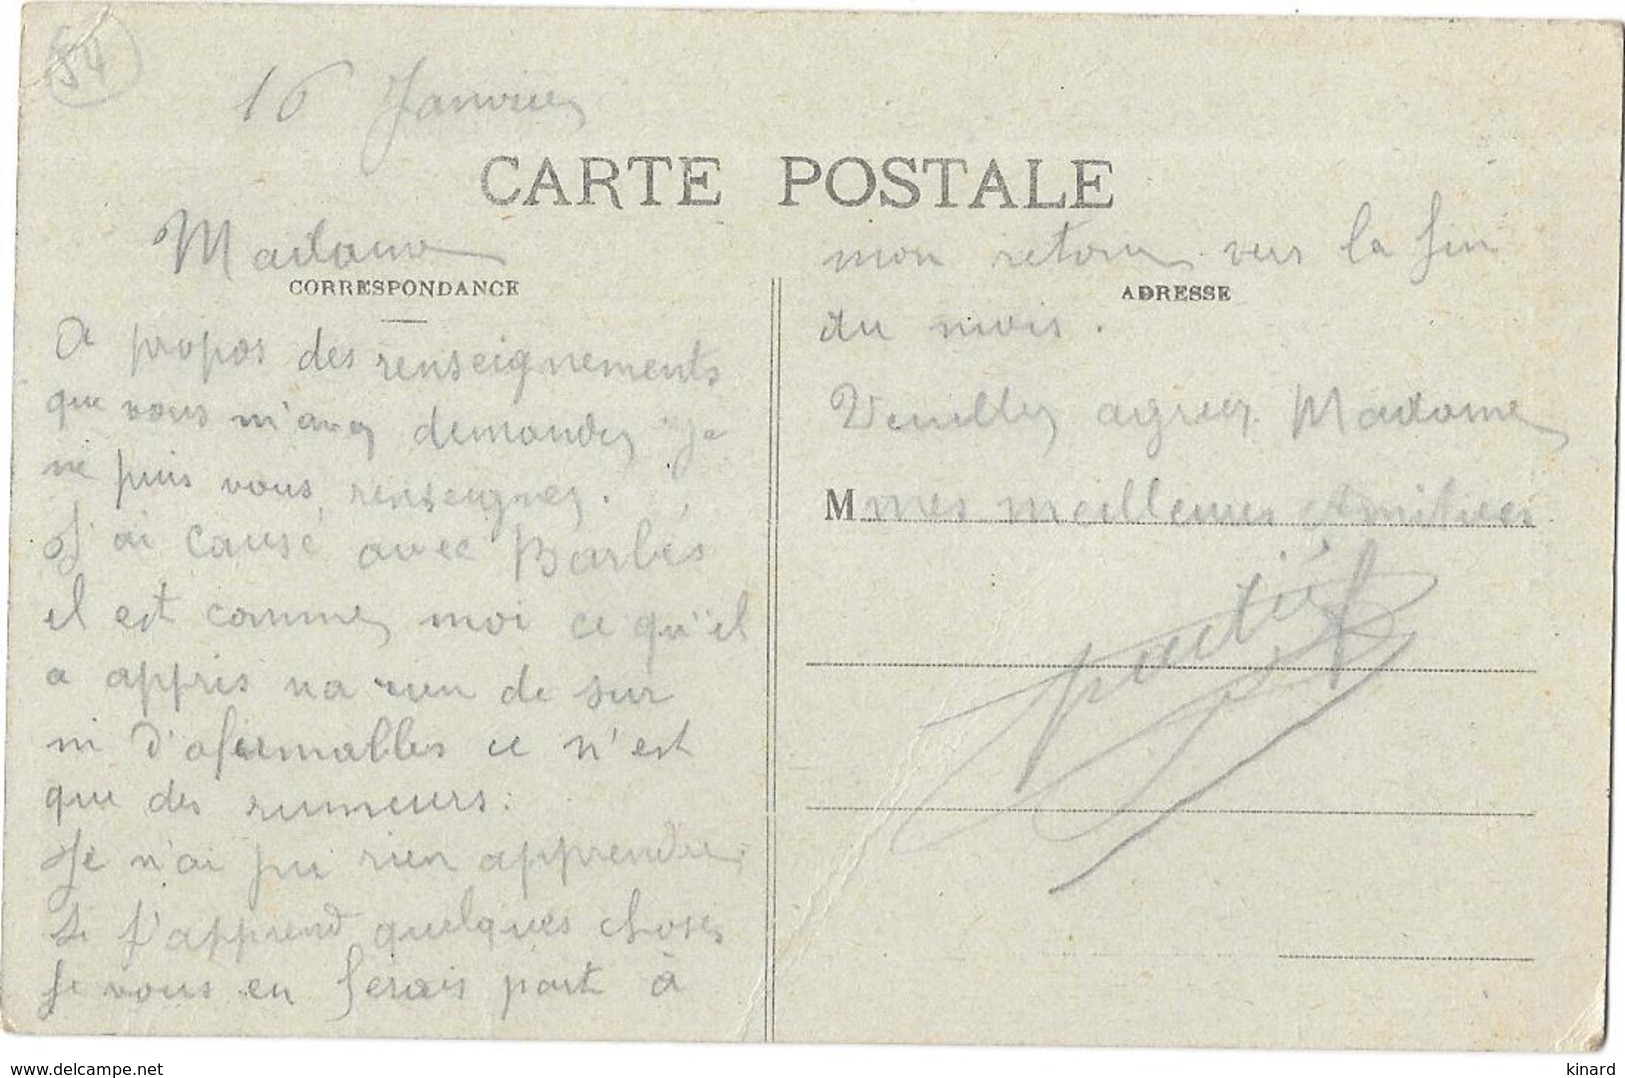 84
16 Janvier
CARTE POSTALE
Madame
CORRESPONDANCE
A propos des renseignements
que vous m'avez demandez je
ne puis vous renseignez.
J'ai causé avec Barbés
il est comme moi ce qu'il
a appris na rien de sur
ni d'afermalles ce n'est
que des rumeurs.
Je n'ai pu rien apprendre,
Si j'apprend quelques choses
je vous en ferais part à
mon retour vers la fin
ADRESSE
du mois.
Veuillez agreer Madame
M mes meilleures Amitiees
kinard
delcampe.net